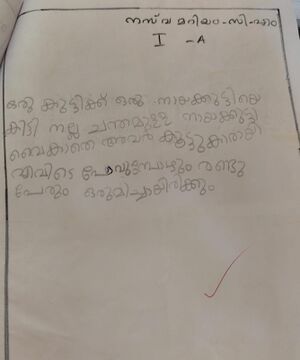 നസ്വ മറിയം. സി. എം
I - A
ഒരു കുട്ടിക്ക് ഒരു നായക്കുട്ടിയെ
കിട്ടി നല്ല ചന്തമുള്ള നായക്കുട്ടി
വൈകാതെ അവർ കൂട്ടുകാരായി
എവിടെ പോവുമ്പോഴും രണ്ടു
പേരും ഒരുമിച്ചായിരിക്കും